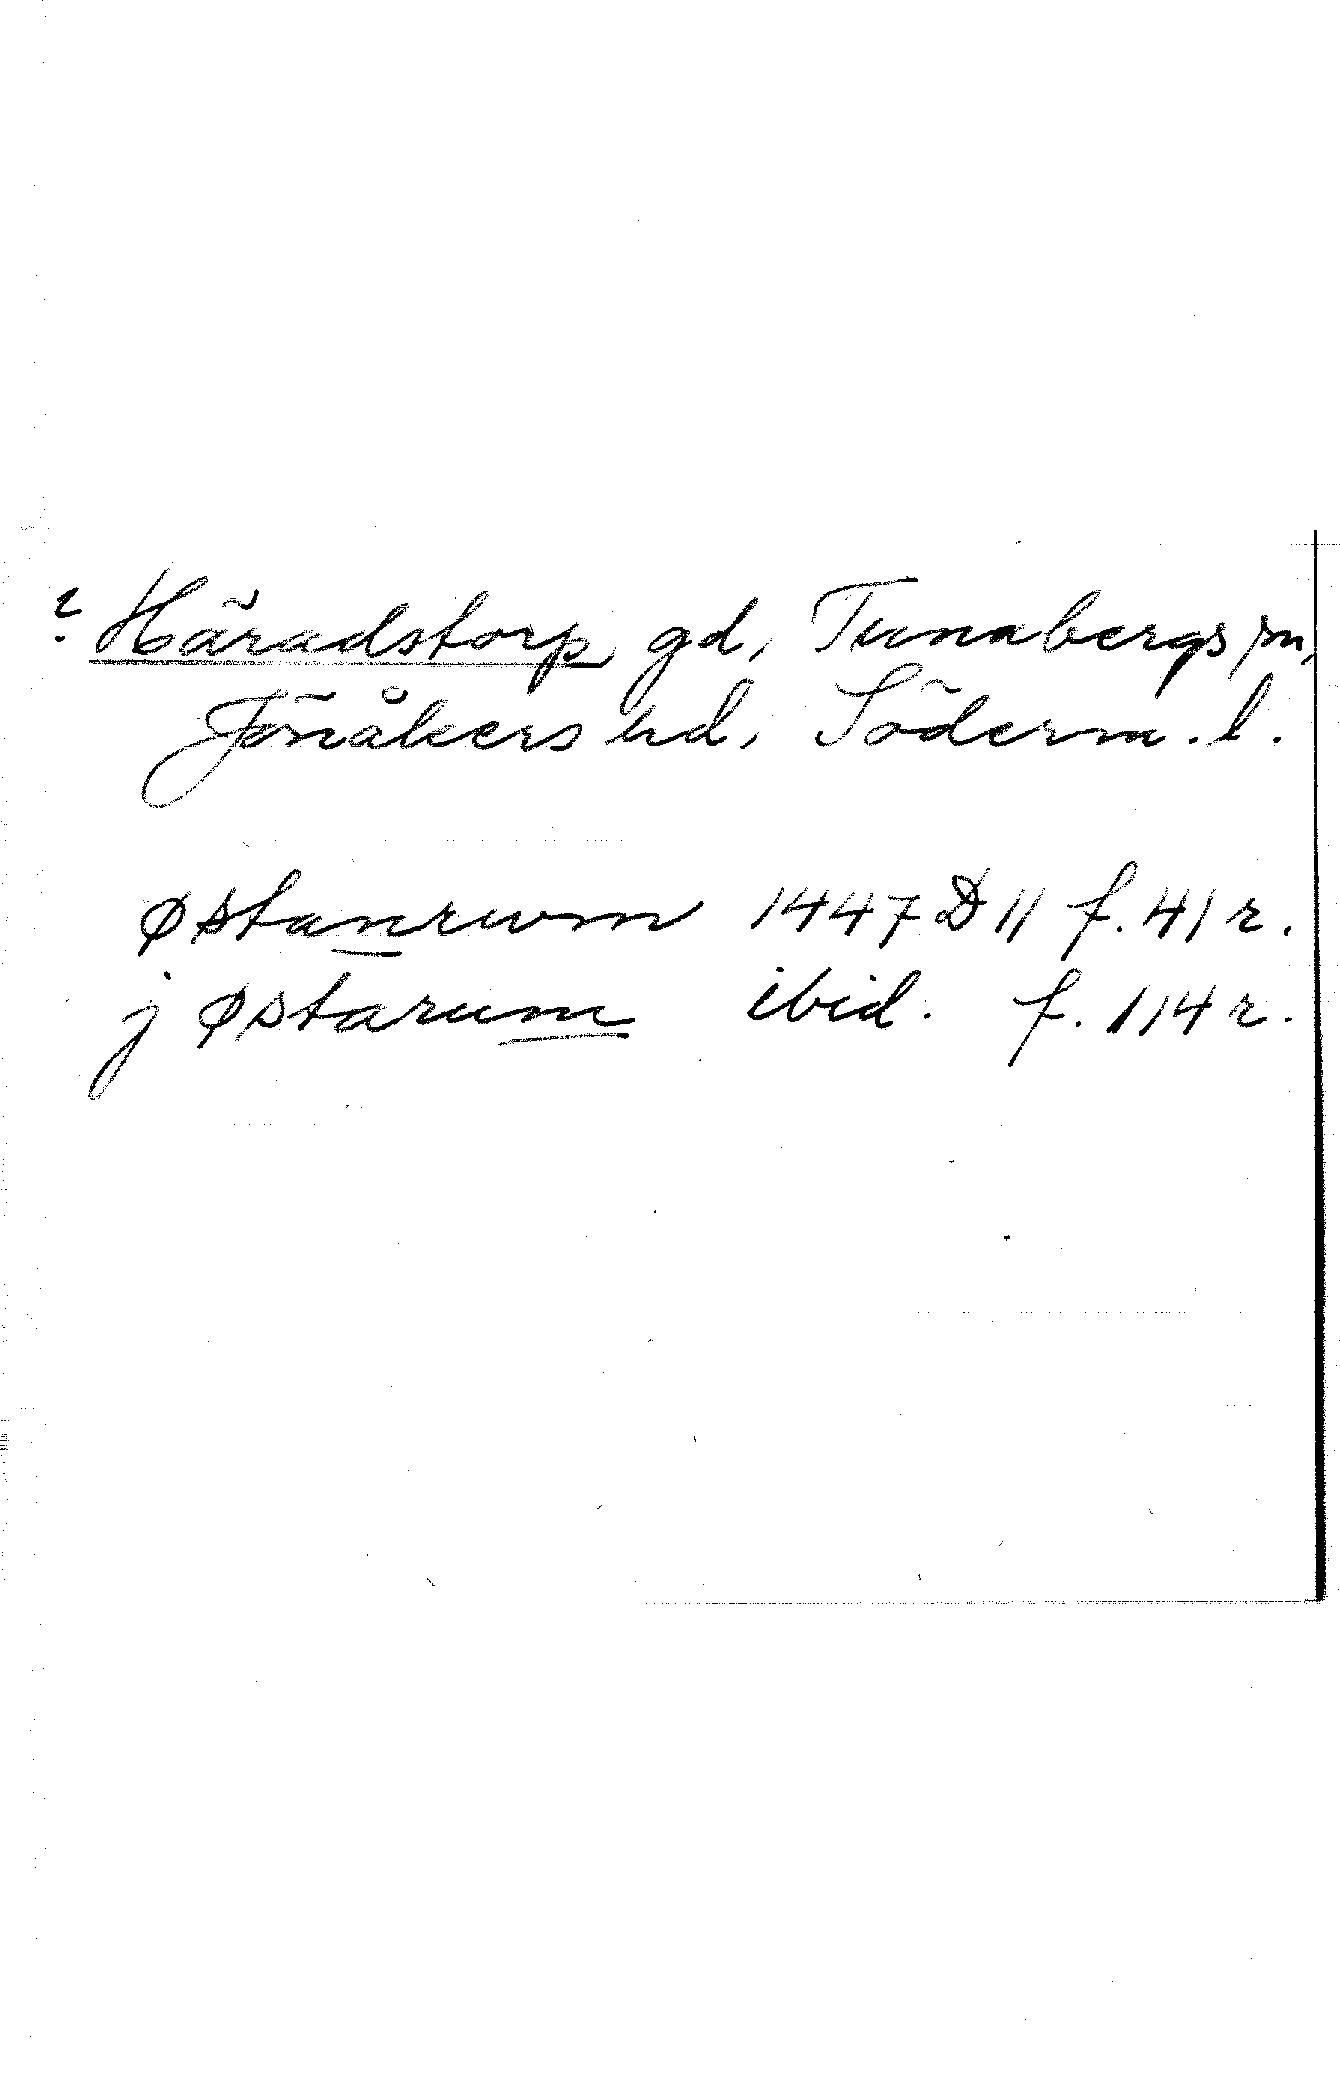 ? Häradstorp gd, Tunabergs sn,
Jönåkers hd, Söderm. l.
østanrwm 1447 D 11 f. 41 r.
j østarum ibid. f. 114 r.